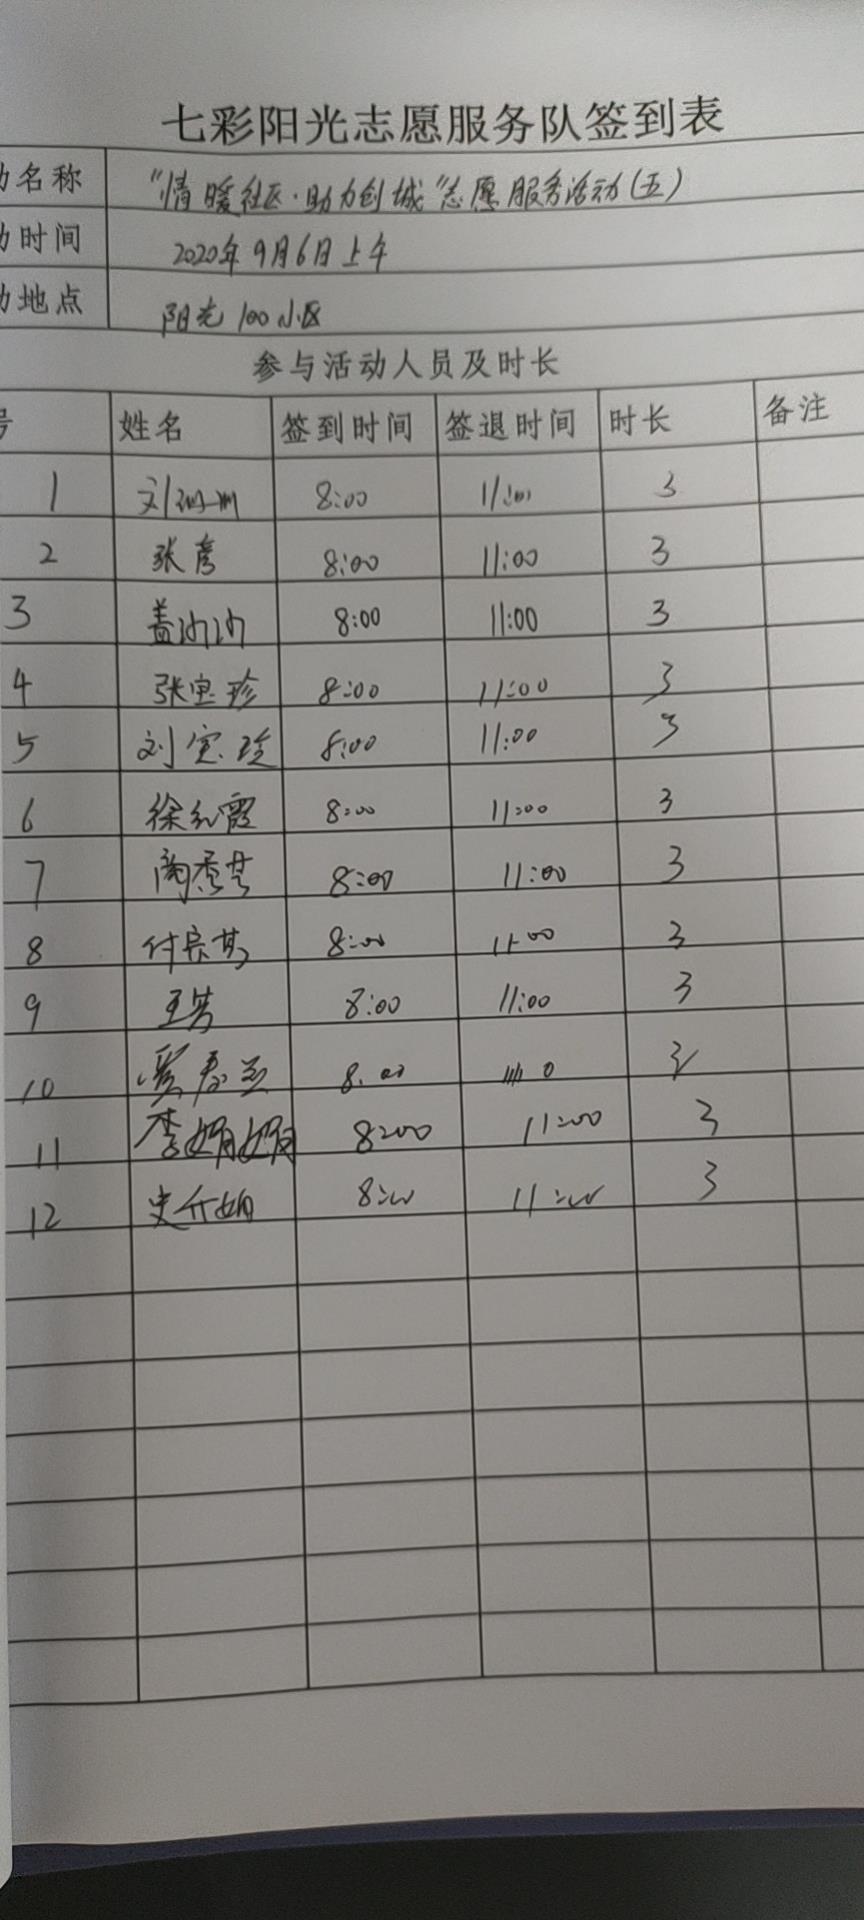 七彩阳光志愿服务队签到表
动名称 "情暖社区·助力创城"志愿服务活动(五)
动时间 2020年9月6日上午
动地点 阳光100小区
参与活动人员及时长
号 姓名 签到时间 签退时间 时长 备注
1 刘 8:00 11:00 3
2 张彦 8:00 11:00 3
3 盖沙沙 8:00 11:00 3
4 张宝珍 8:00 11:00 3
5 刘宝珍 8:00 11:00 3
6 徐红霞 8:00 11:00 3
7 8:00 11:00 3
8 付 8:00 11:00 3
9 王芳 8:00 11:00 3
10 贾春兰 8:00 3
11 李娟娟 8:00 11:00 3
12 史 8:00 11:00 3